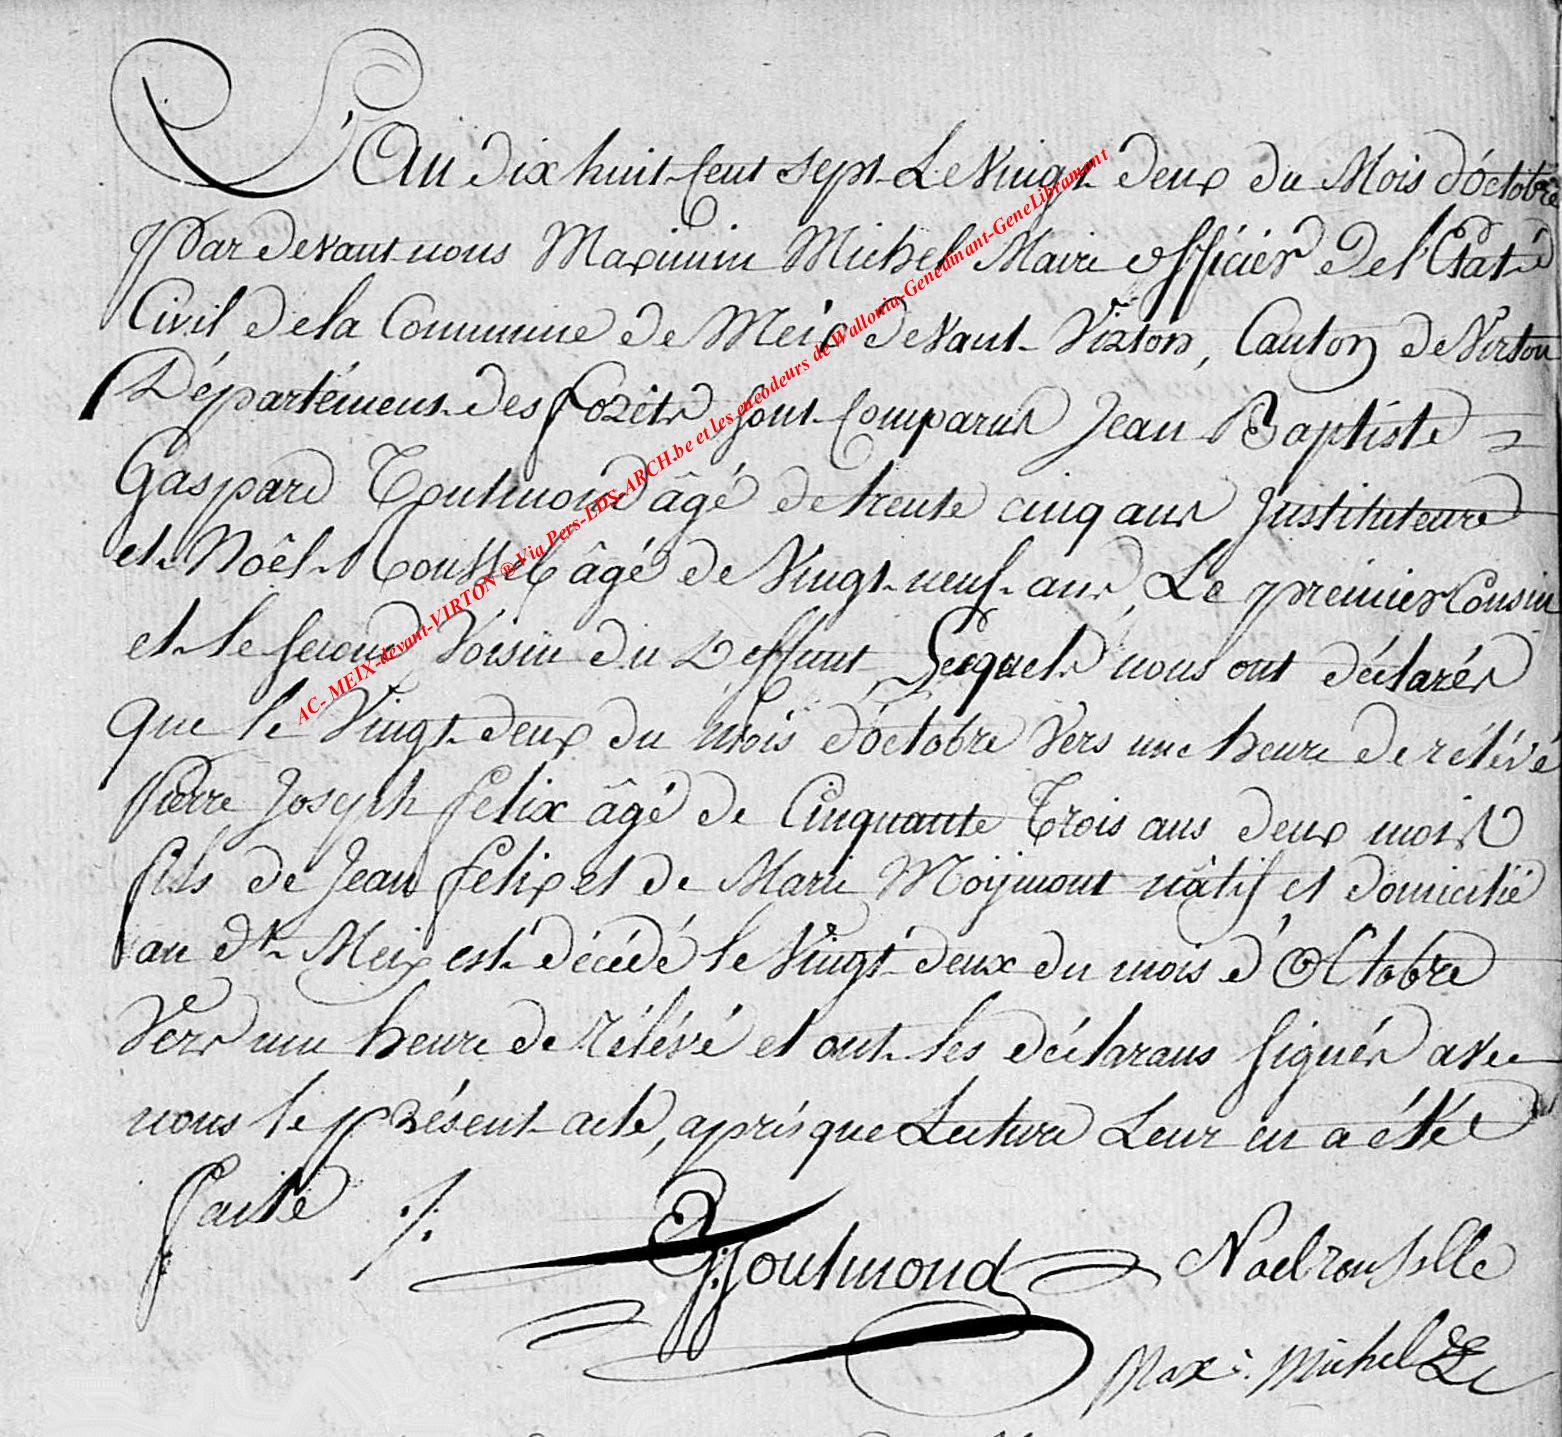 L'An dix huit Cent Sept Le Vingt deux du Mois d'octobre
par devant nous Maximin Michel Maire officier de l'Etat
Civil de la Commune de Meix devant Virton, Canton de Virton
Département des forêts sont Comparus Jean Baptiste =
Gaspard Toutmond âgé de trente cinq ans Instituteure
et Noêl Roussel âgé de Vingt neuf ans, Le premier Cousin
et le second Voisin du Deffunt Lesquels nous ont déclarés
que le Vingt deux du mois d'octobre Vers une heure de rélévé
Pierre Joseph felix âgé de Cinquante Trois ans deux mois
fils de Jean felix et de Marie Moÿmont nâtif et domicilié
au dt Meix est décédé le Vingt deux du mois d'Octobre
Vers une heure de rélévé et ont les déclarans signés avec
nous le présent acte, après que Lecture Leur en a été
faite ./.
Toutmond Noel rousselle
Max: Michel
AC- MEIX-devant-VIRTON ® Via Pers-LDS-ARCH.be et les encodeurs de Wallonia-Genedinant-GeneLibramont